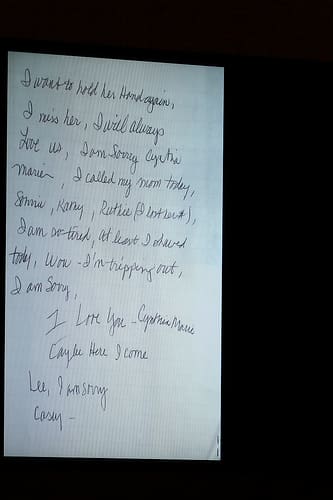 I want to hold her Hand again,
I miss her, I will always
Love us, I am Sorry Cyntia
Marie, I called my mom today,
Sonnie, Kathy, Ruthie (I lost her #),
I am so tired, at least I shaved
today, Wow - I'm tripping out,
I am Sorry,
I Love You - Cynthia Marie
Caylee Here I come
Lee, I am sorry
Casey -